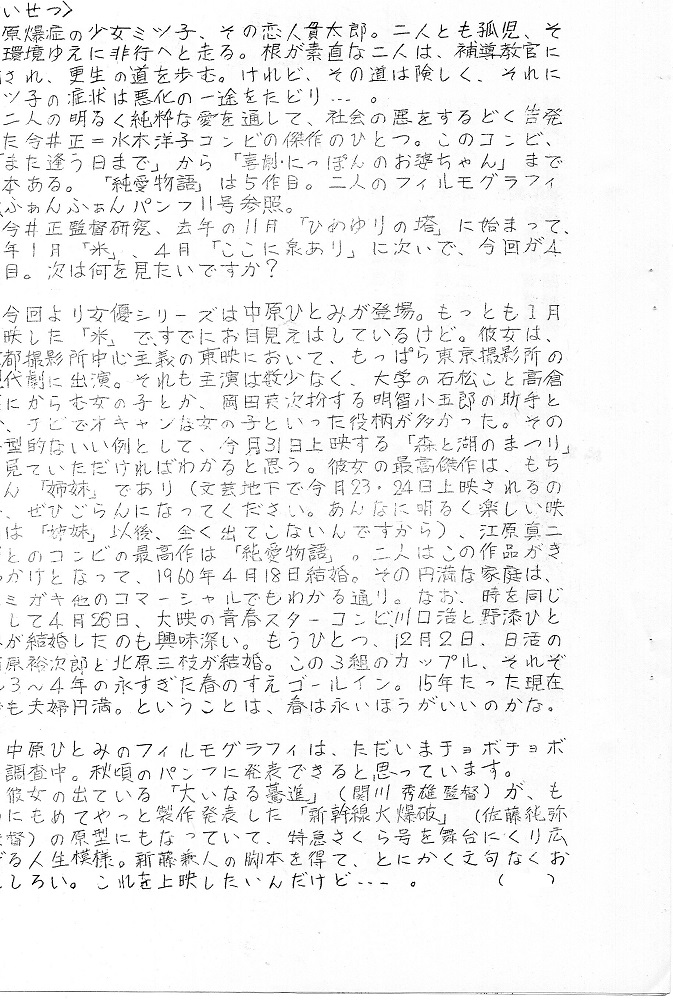 いせつ>
原爆症の少女ミツ子、その恋人貫太郎。二人とも孤児、そ
環境ゆえに非行へと走る。根が素直な二人は、補導教官に
され、更生の道を歩む。けれど、その道は険しく、それに
ツ子の症状は悪化の一途をたどり…。
二人の明るく純粋な愛を通して、社会の悪をするどく告発
た今井正=水木洋子コンビの傑作のひとつ。このコンビ、
「また逢う日まで」から「喜劇・にっぽんのお婆ちゃん」まで
本ある。「純愛物語」は5作目。二人のフィルモグラフィ
ふぁんふぁんパンフ11号参照。
今井正監督研究、去年の11月「ひめゆりの塔」に始まって、
年1月「米」、4月「ここに泉あり」に次いで、今回が4
目。次は何を見たいですか?
今回より女優シリーズは中原ひとみが登場。もっとも1月
映した「米」ですでにお目見えはしているけど。彼女は、
都撮影所中心主義の東映において、もっぱら東京撮影所の
現代劇に出演。それも主演は数少なく、大学の石松こと高倉
にからむ女の子とか、岡田英次扮する明智小五郎の助手と
、チビでオキャンな女の子といった役柄が多かった。その
型的ないい例として、今月31日上映する「森と湖のまつり」
見ていただければわかると思う。彼女の最高傑作は、もち
ん「姉妹」であり(文芸地下で今月23・24日上映されるの
、ぜひごらんになってください。あんなに明るく楽しい映
は「姉妹」以後、全く出てこないんですから)、江原真二
とのコンビの最高作は「純愛物語」。二人はこの作品がき
っかけとなって、1960年4月18日結婚。その円満な家庭は、
ミガキ他のコマーシャルでもわかる通り。なお、時を同じ
して4月26日、大映の青春スターコンビ川口浩と野添ひと
が結婚したのも興味深い。もうひとつ、12月2日、日活の
原裕次郎と北原三枝が結婚。この3組のカップル、それぞ
3~4年の永すぎた春のすえゴールイン。15年たった現在
も夫婦円満。ということは、春は永いほうがいいのかな。
中原ひとみのフィルモグラフィは、ただいまチョボチョボ
調査中。秋頃のパンフに発表できると思っています。
彼女の出ている「大いなる驀進」(関川秀雄監督)が、も
にもめてやっと製作発表した「新幹線大爆破」(佐藤純弥
督)の原型にもなっていて、特急さくら号を舞台にくり広
る人生模様。新藤兼人の脚本を得て、とにかく文句なくお
しろい。これを上映したいんだけど…。 ( )